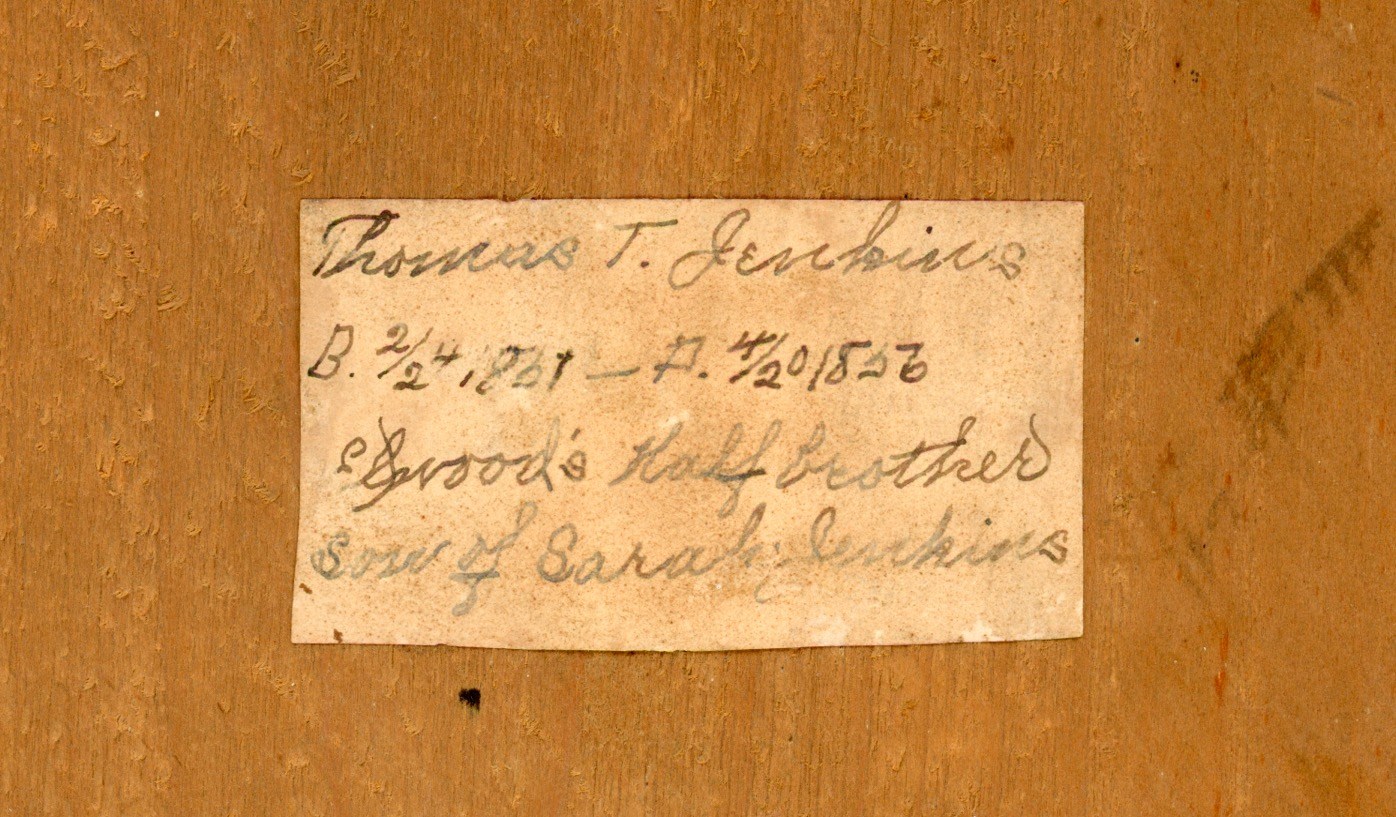 Thomas T. Jenkins
B. 2/24, 1851 — D. 4/20 1856
Half brother
Son of Sarah Jenkins